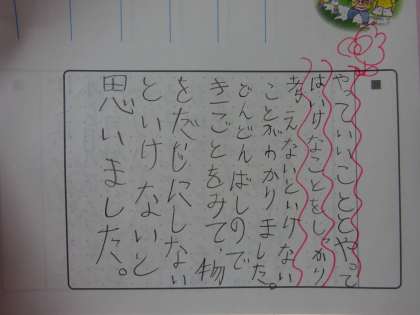 やっていいこととやって
はいけなことをしっかり
考えないといけない
ことがわかりました。
どんどんばしので
きごとをみて、物
をだじにしない
といけないと
思いました。